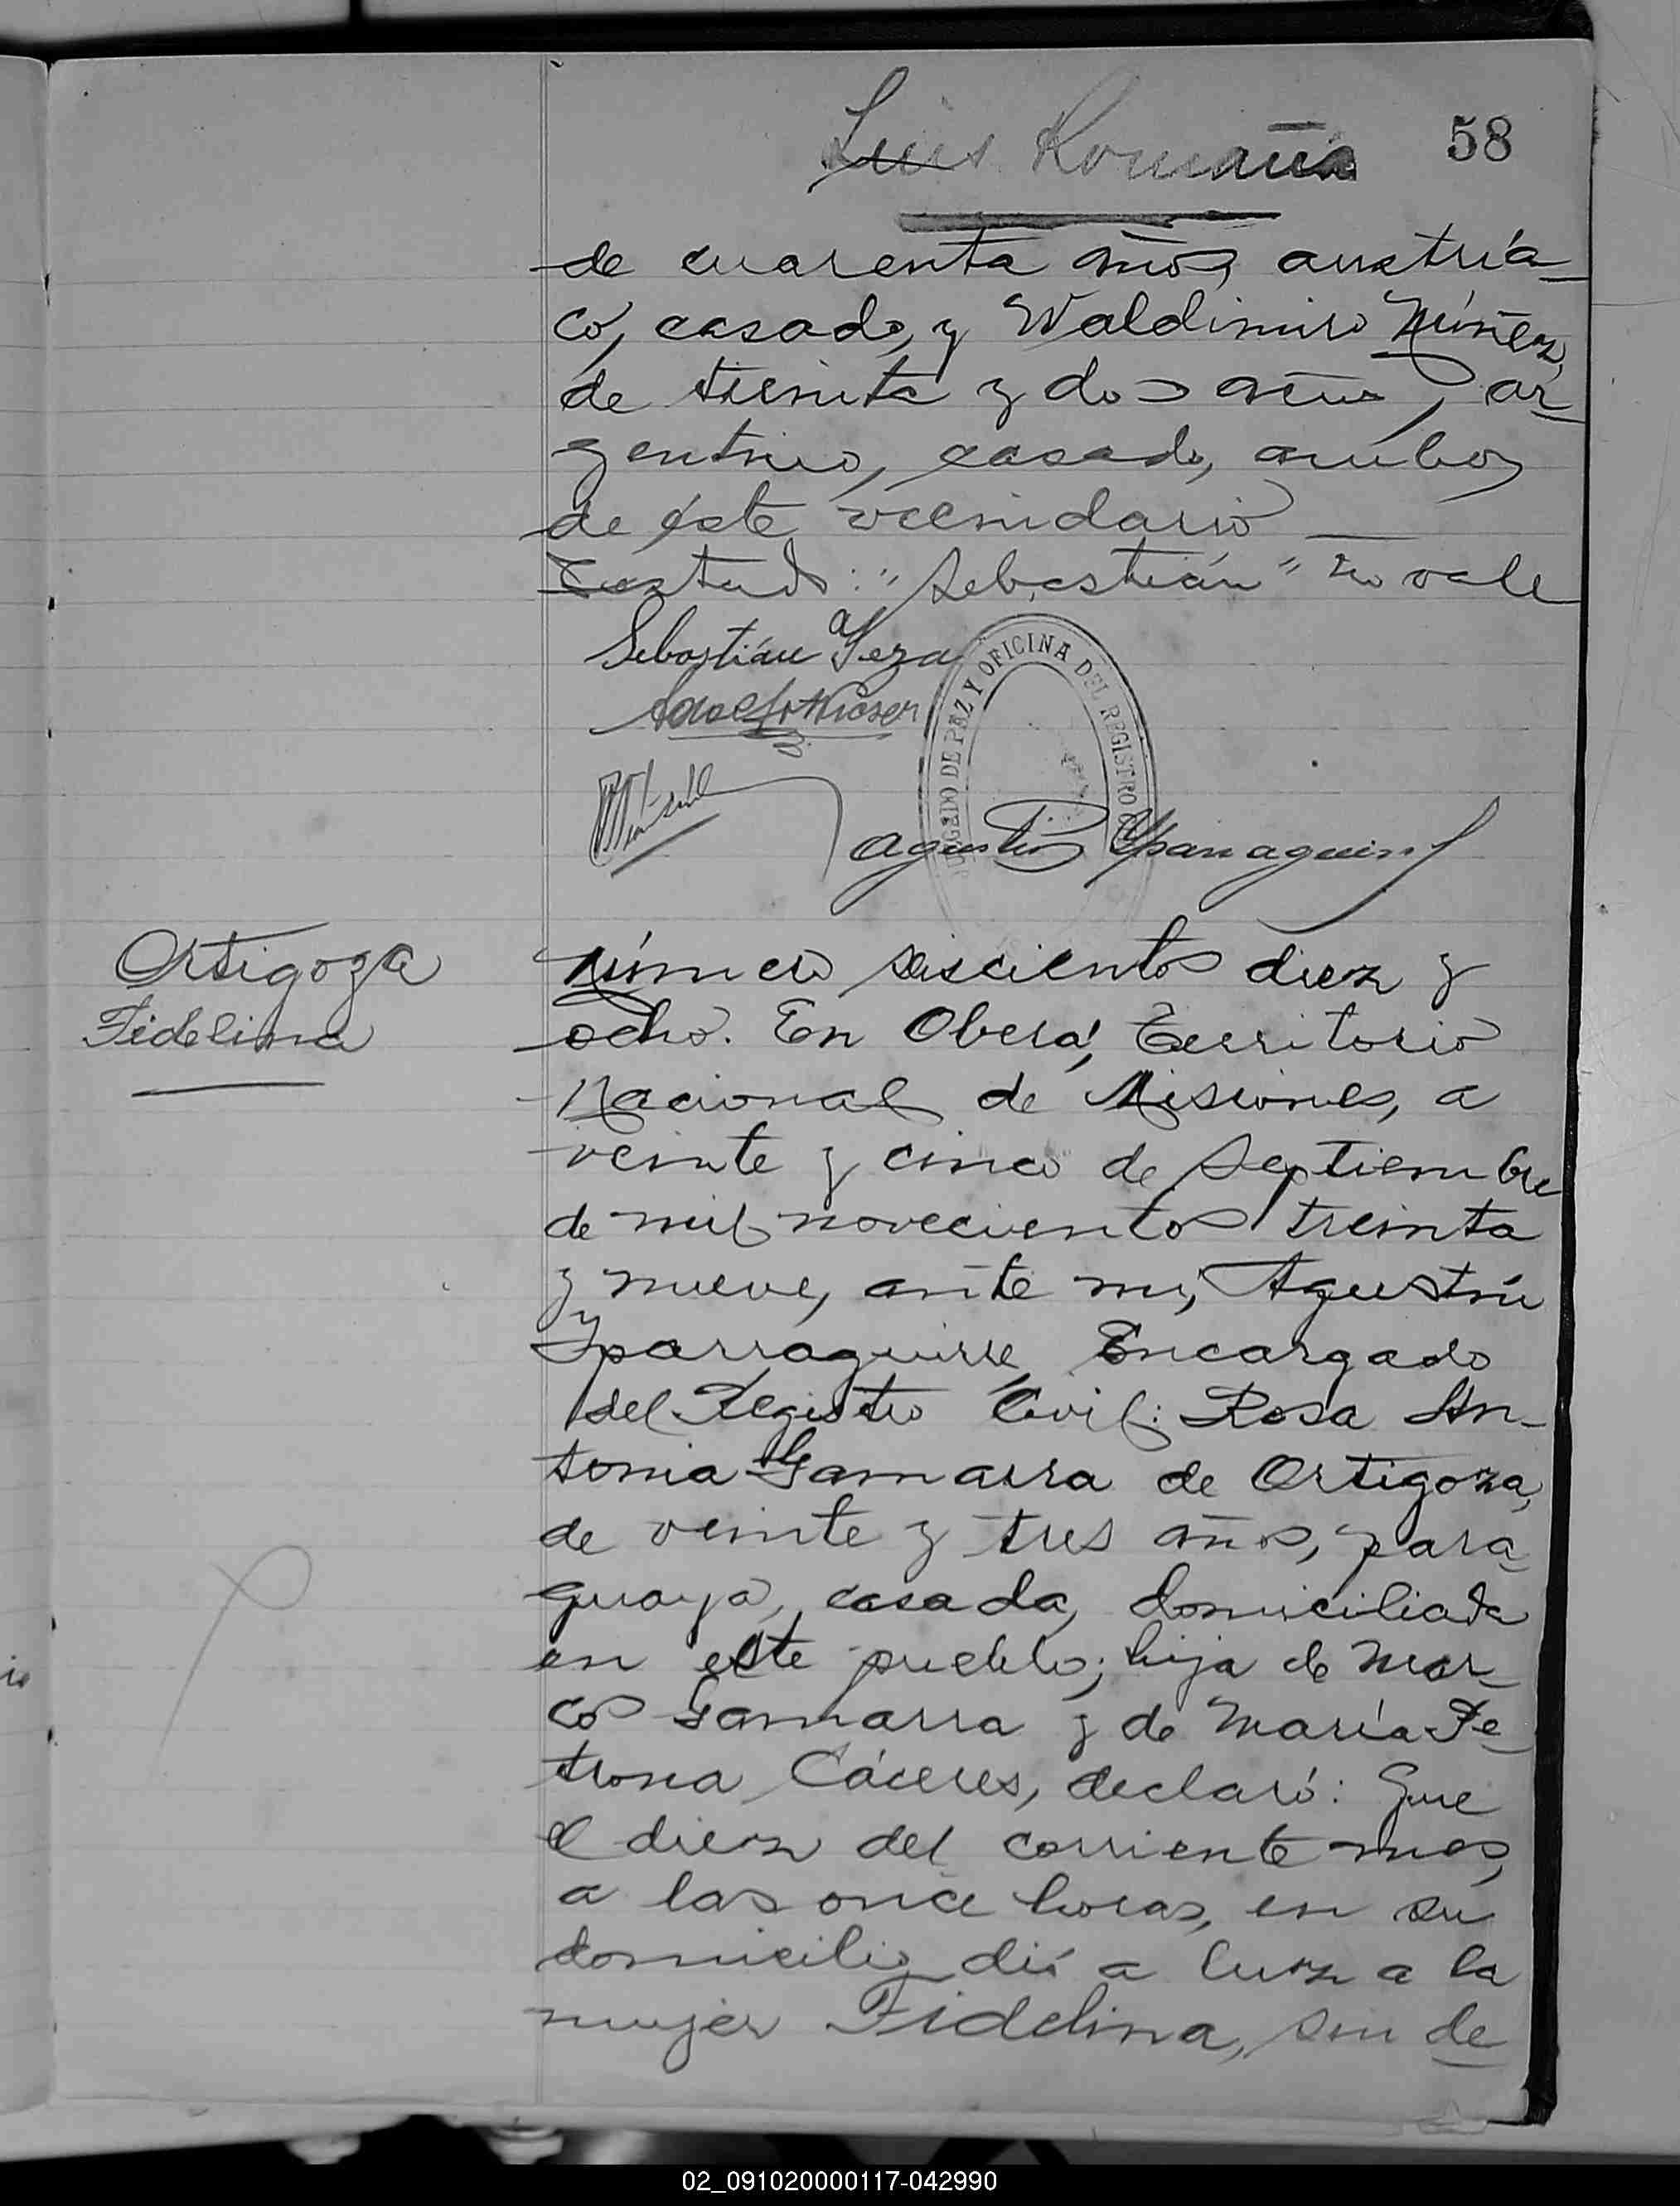 58
Luis Romaña
de cuarenta años, austría-
co, casado, y Waldimiro Núñez,
de treinta y dos años, ar-
gentino, casado, ambos
de éste vecindario
Testado: "Sebastián" no vale
Sebastián
JUZGADO DE PAZ Y OFICINA DEL REGISTRO
Agustin Yparraguirre
Ortigoza
Fidelina
Número seiscientos diez y
ocho. En Oberá, Territorio
Nacional de Misiones, a
veinte y cinco de Septiembre
de mil novecientos treinta
y nueve, ante mi, Agustín
Yparraguirre, Encargado
del Registro Civil: Rosa An-
tonia Gamarra de Ortigoza,
de veinte y tres años, para-
guaya, casada, domiciliada
en este pueblo; hija de Mar-
cos Gamarra y de María Pe-
trona Cáceres, declaró: Que
el diez del corriente mes,
a las once horas, en su
domicilio dió a luz a la
mujer Fidelina, sin de-
02_091020000117-042990